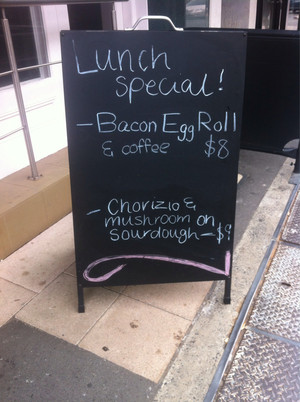 Lunch
special!
- Bacon Egg Roll
& coffee $8
- Chorizio &
mushroom on
sourdough - $9